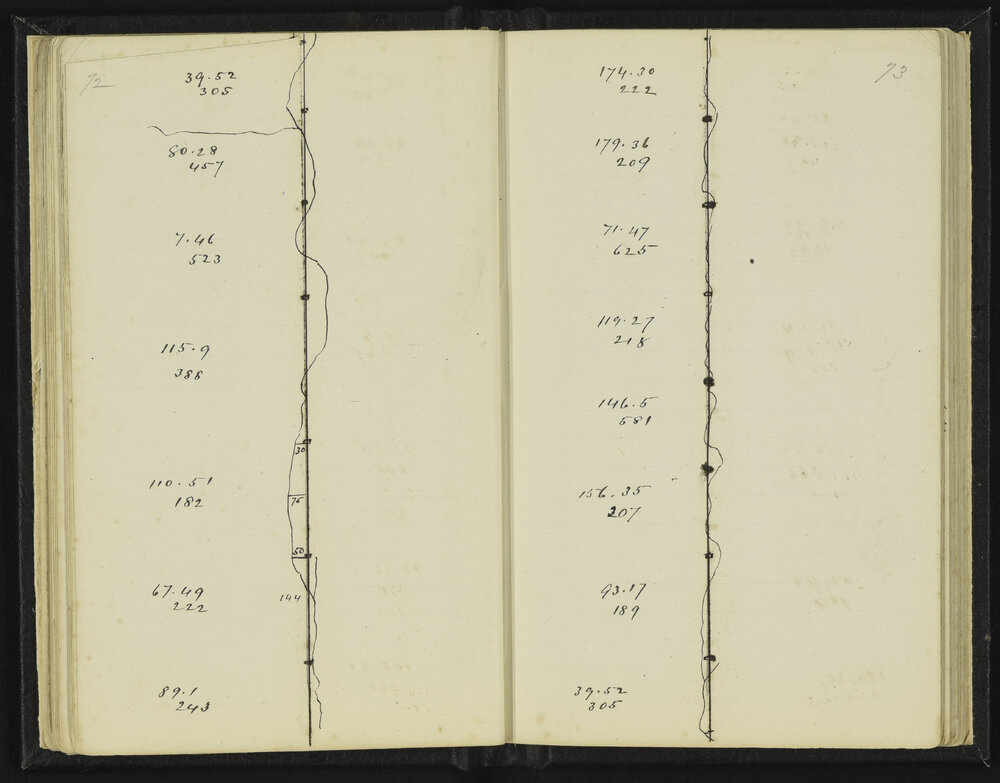 72
39.52
305
80.28
457
7.46
523
115.9
388
30
110.51
182
75
50
67.49
222
144
89.1
243
73
174.30
222
179.36
209
71.47
625
119.27
218
146.5
581
156.35
207
93.17
189
39.52
305